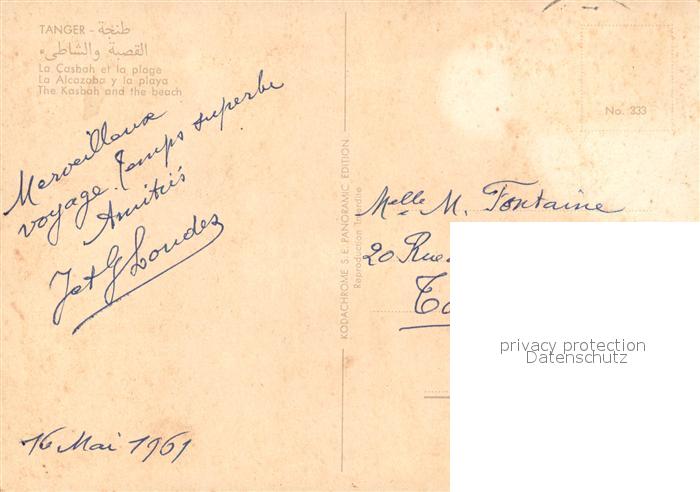 TANGER - طنجة
القصبة والشاطىء
La Casbah et la plage
La Alcazaba y la playa
The Kasbah and the beach
Merveilleux
voyage. Temps superbe
Amitiés
J et G Loudes
16 Mai 1961
KODACHROME S. E. PANORAMIC EDITION
Reproduction Interdite
No. 333
Melle M. Fontaine
20 Rue
privacy protection
Datenschutz